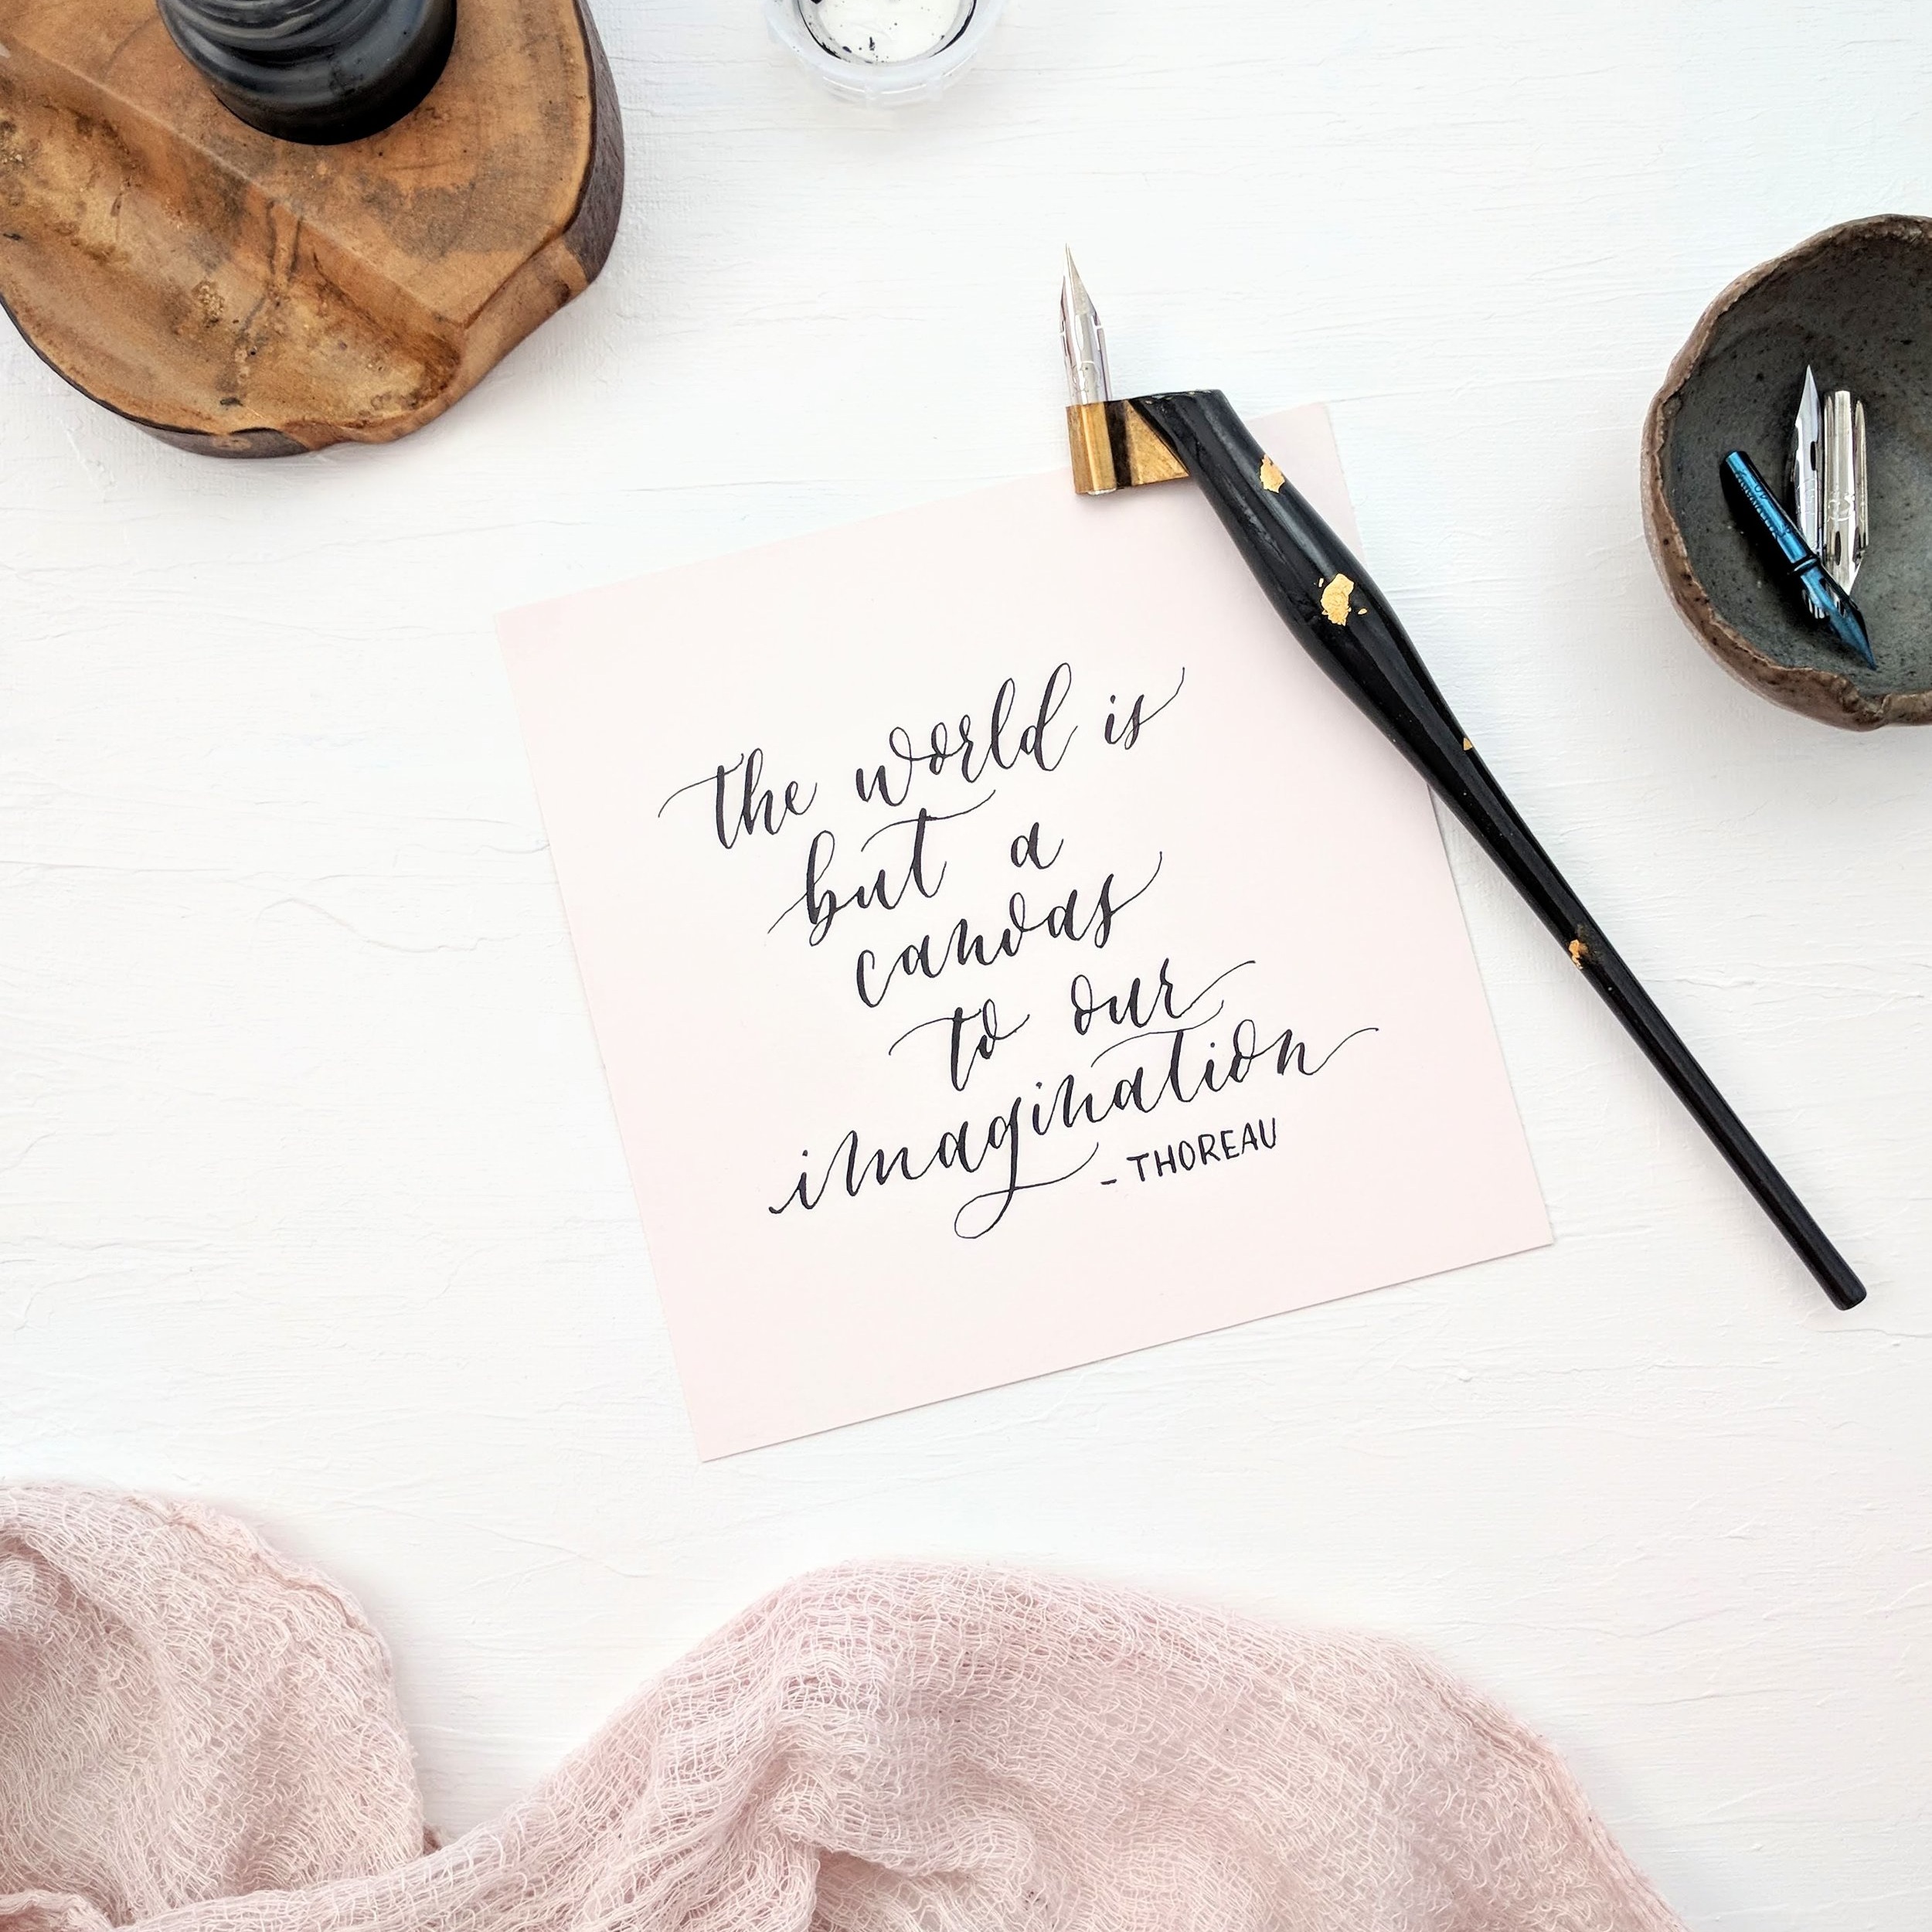 the world is
but a
canvas
to our
imagination
- THOREAU